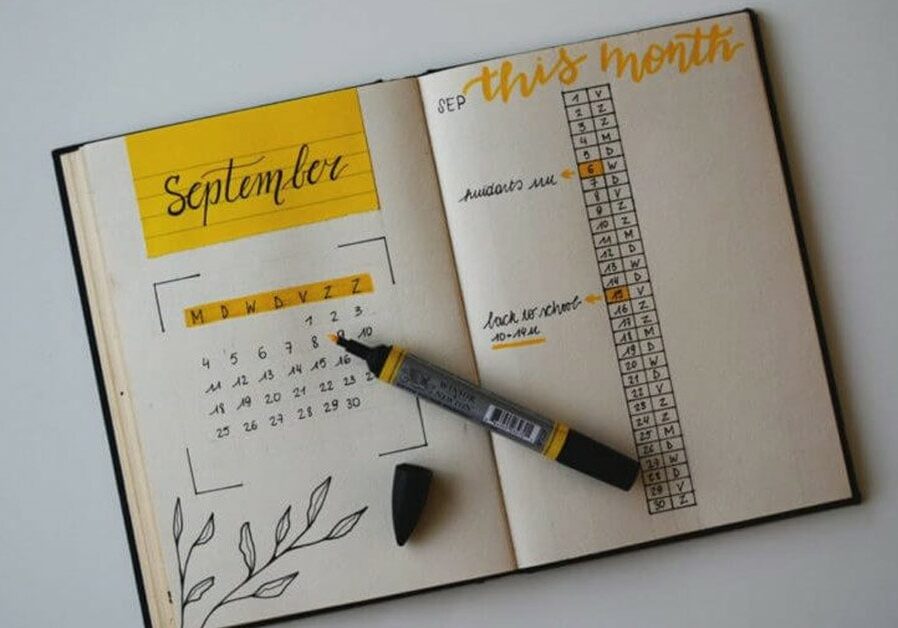 September
M D W D V Z Z
1 2 3
4 5 6 7 8 9 10
11 12 13 14 15 16
18 19 20 21 22 23
25 26 27 28 29 30
WINSOR
& NEWTON
SEP this month
1 V
2 Z
3 Z
4 M
5 D
huidarts
6 W
7 D
8 V
9 Z
10 Z
11 M
12 D
13 W
14 D
back to school
15 V
10-14u
16 Z
17 Z
18 M
19 D
20 W
21 D
22 V
23 Z
24 Z
25 M
26 D
27 W
28 D
29 V
30 Z